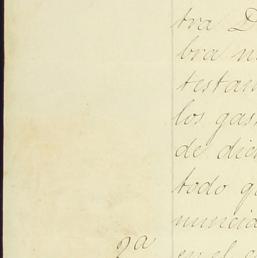 tra D
bra n
testam
los gas
de dic
todo q
nuncia
2a
en el